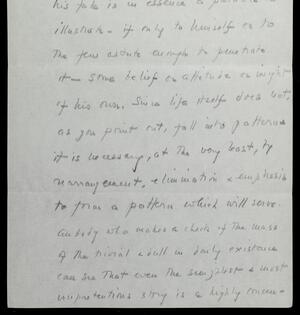 his tale is in essence a
illustrate - if only to himself or to
the few astute enough to penetrate
it - some belief or attitude or insight
of his own. Since life itself does not,
as you point out, fall into patterns
it is necessary, at the very least, by
rearrangement, elimination & emphasis
to form a pattern which will serve.
Anybody who makes a check of the mass
of the trivial & dull in daily existence
can see that even the simplest & most
unpretentious story is a highly concen-